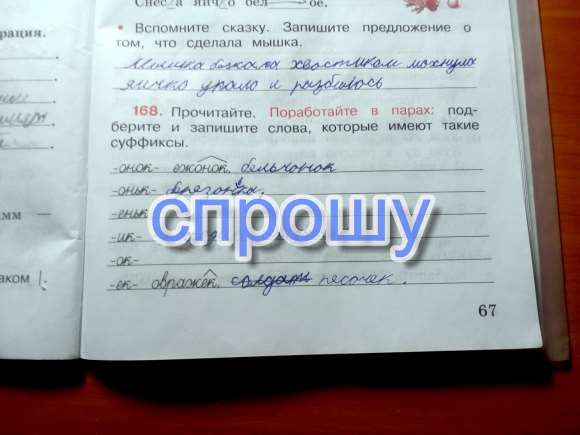 Снес а яичко бел ое.
• Вспомните сказку. Запишите предложение о
том, что сделала мышка.
Мышка бежала хвостиком махнула
яичко упало и разбилось
168. Прочитайте. Поработайте в парах: под-
берите и запишите слова, которые имеют такие
суффиксы.
-онок- ежонок, бельчонок
-оньк-
-еньк-
-ик-
-ок-
-ек- овражек, солдат песочек.
67
рация.
мм
аком
спрошу